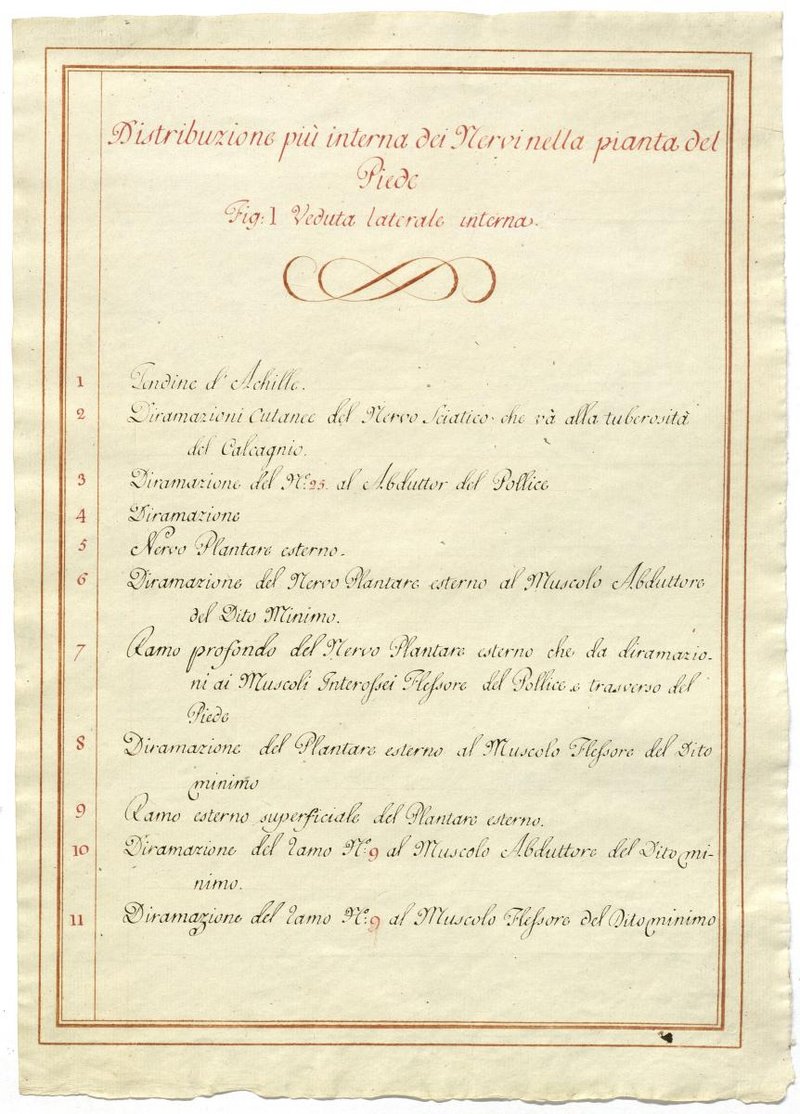 Distribuzione più interna dei Nervi nella pianta del
Piede
Fig: 1 Veduta laterale interna.
1 Tendine d' Achille.
2 Diramazioni Cutanee del Nervo Sciatico che và alla tuberosità
del Calcagnio.
3 Diramazione del N.º 25. al Abduttor del Pollice
4 Diramazione
5 Nervo Plantare esterno.
6 Diramazione del Nervo Plantare esterno al Muscolo Abduttore
del Dito Minimo.
7 Ramo profondo del Nervo Plantare esterno che da diramazio-
ni ai Muscoli Interossei Flessore del Pollice e trasverso del
Piede
8 Diramazione del Plantare esterno al Muscolo Flessore del Dito
minimo
9 Ramo esterno superficiale del Plantare esterno.
10 Diramazione del ramo N.º 9 al Muscolo Abduttore del Dito mi-
nimo.
11 Diramazione del ramo N.º 9 al Muscolo Flessore del Dito minimo